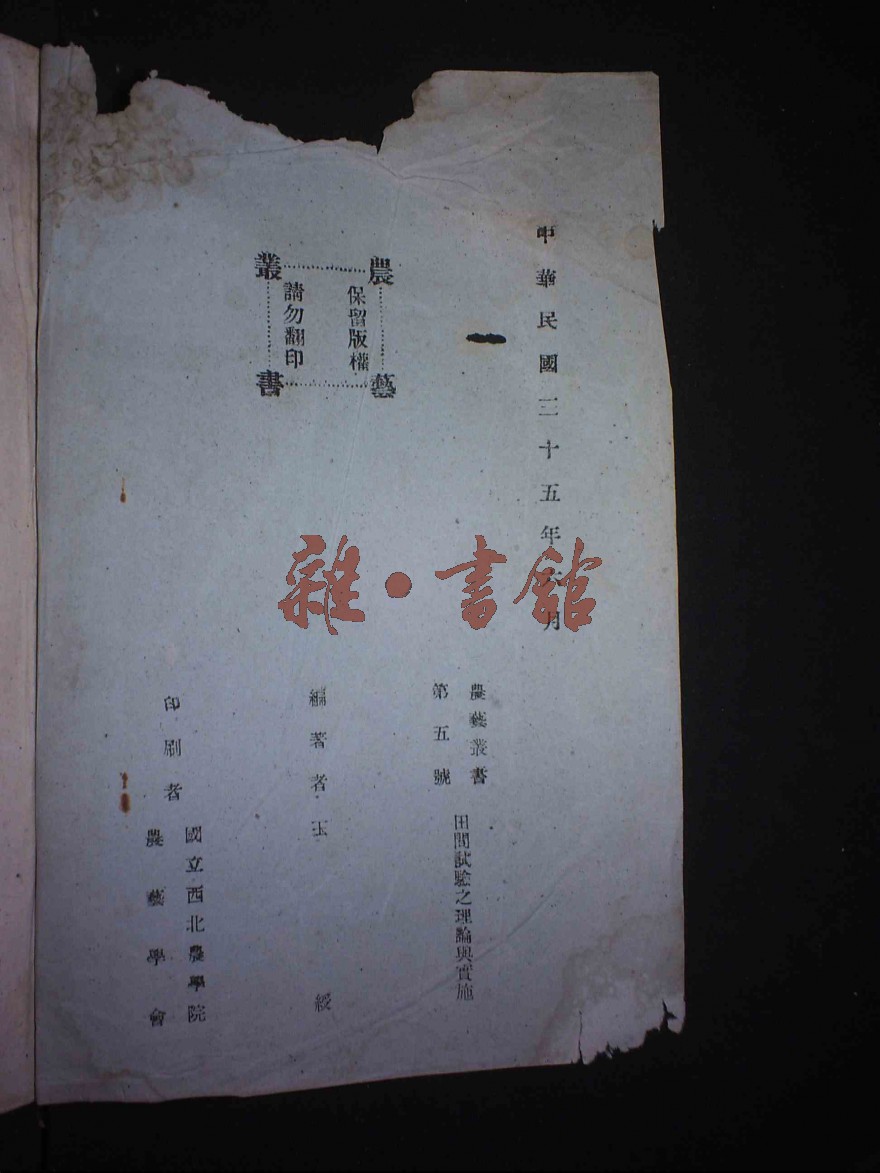 中華民國三十五年六月
農藝叢書
保留版權
請勿翻印
農藝叢書
第五號
田間試驗之理論與實施
編著者 王 綬
印刷者
國立西北農學院
農藝學會
雜·書館